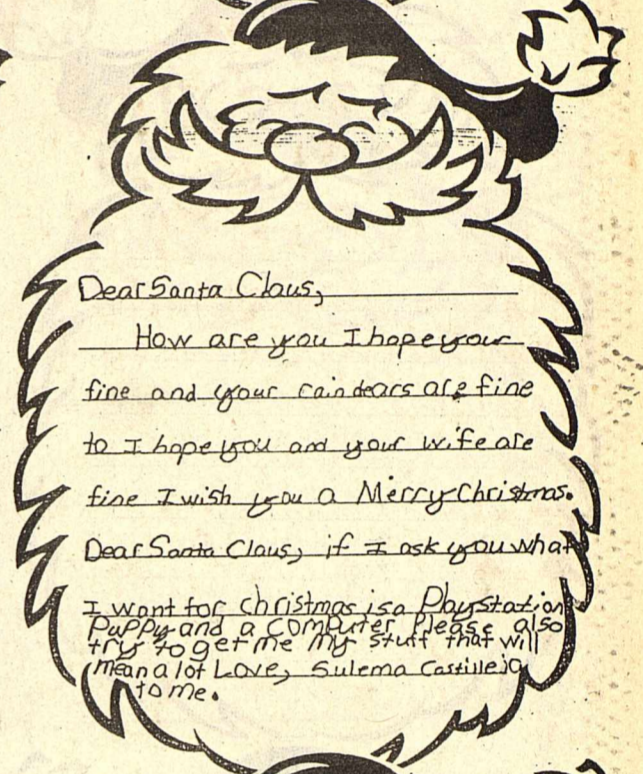 Dear Santa Claus,
How are you I hope your
fine and your raindears are fine
to I hope you and your wife are
fine I wish you a Merry Christmas.
Dear Santa Claus, if I ask you what
I want for christmas is a Playstation
Puppy and a computer Please also
try to get me my stuff that will
mean a lot Love, Sulema Castilleja
to me.